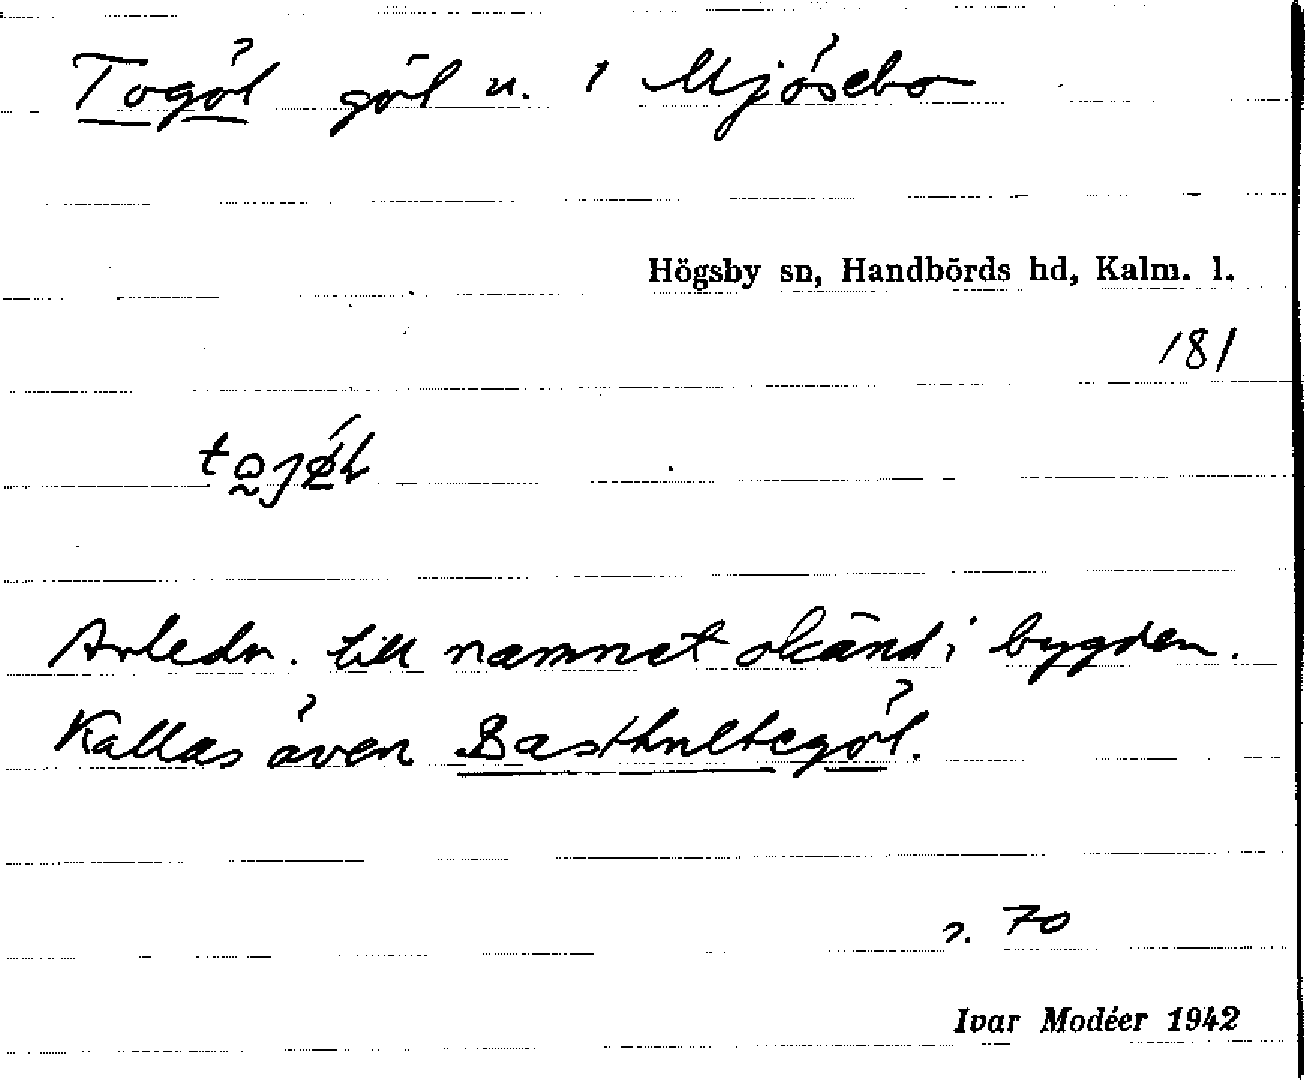 Togöl göl n. i Mjösebo
Högsby sn, Handbörds hd, Kalm. l.
181
Anledn. till namnet okänd i bygden.
Kallas även Basthultegöl.
s. 70
Ivar Modéer 1942